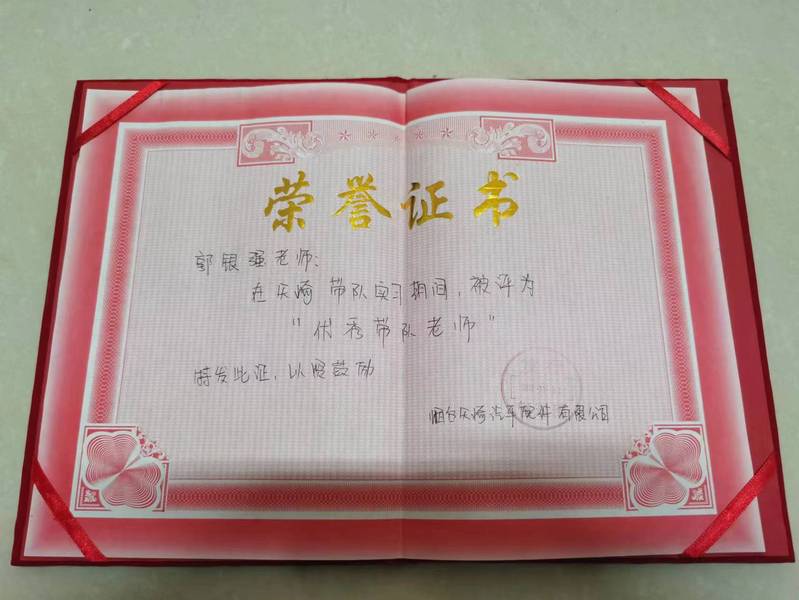 荣誉证书
郭银强老师:
在矢崎带队实习期间,被评为
"优秀带队老师"
特发此证,以资鼓励
烟台矢崎汽车配件有限公司